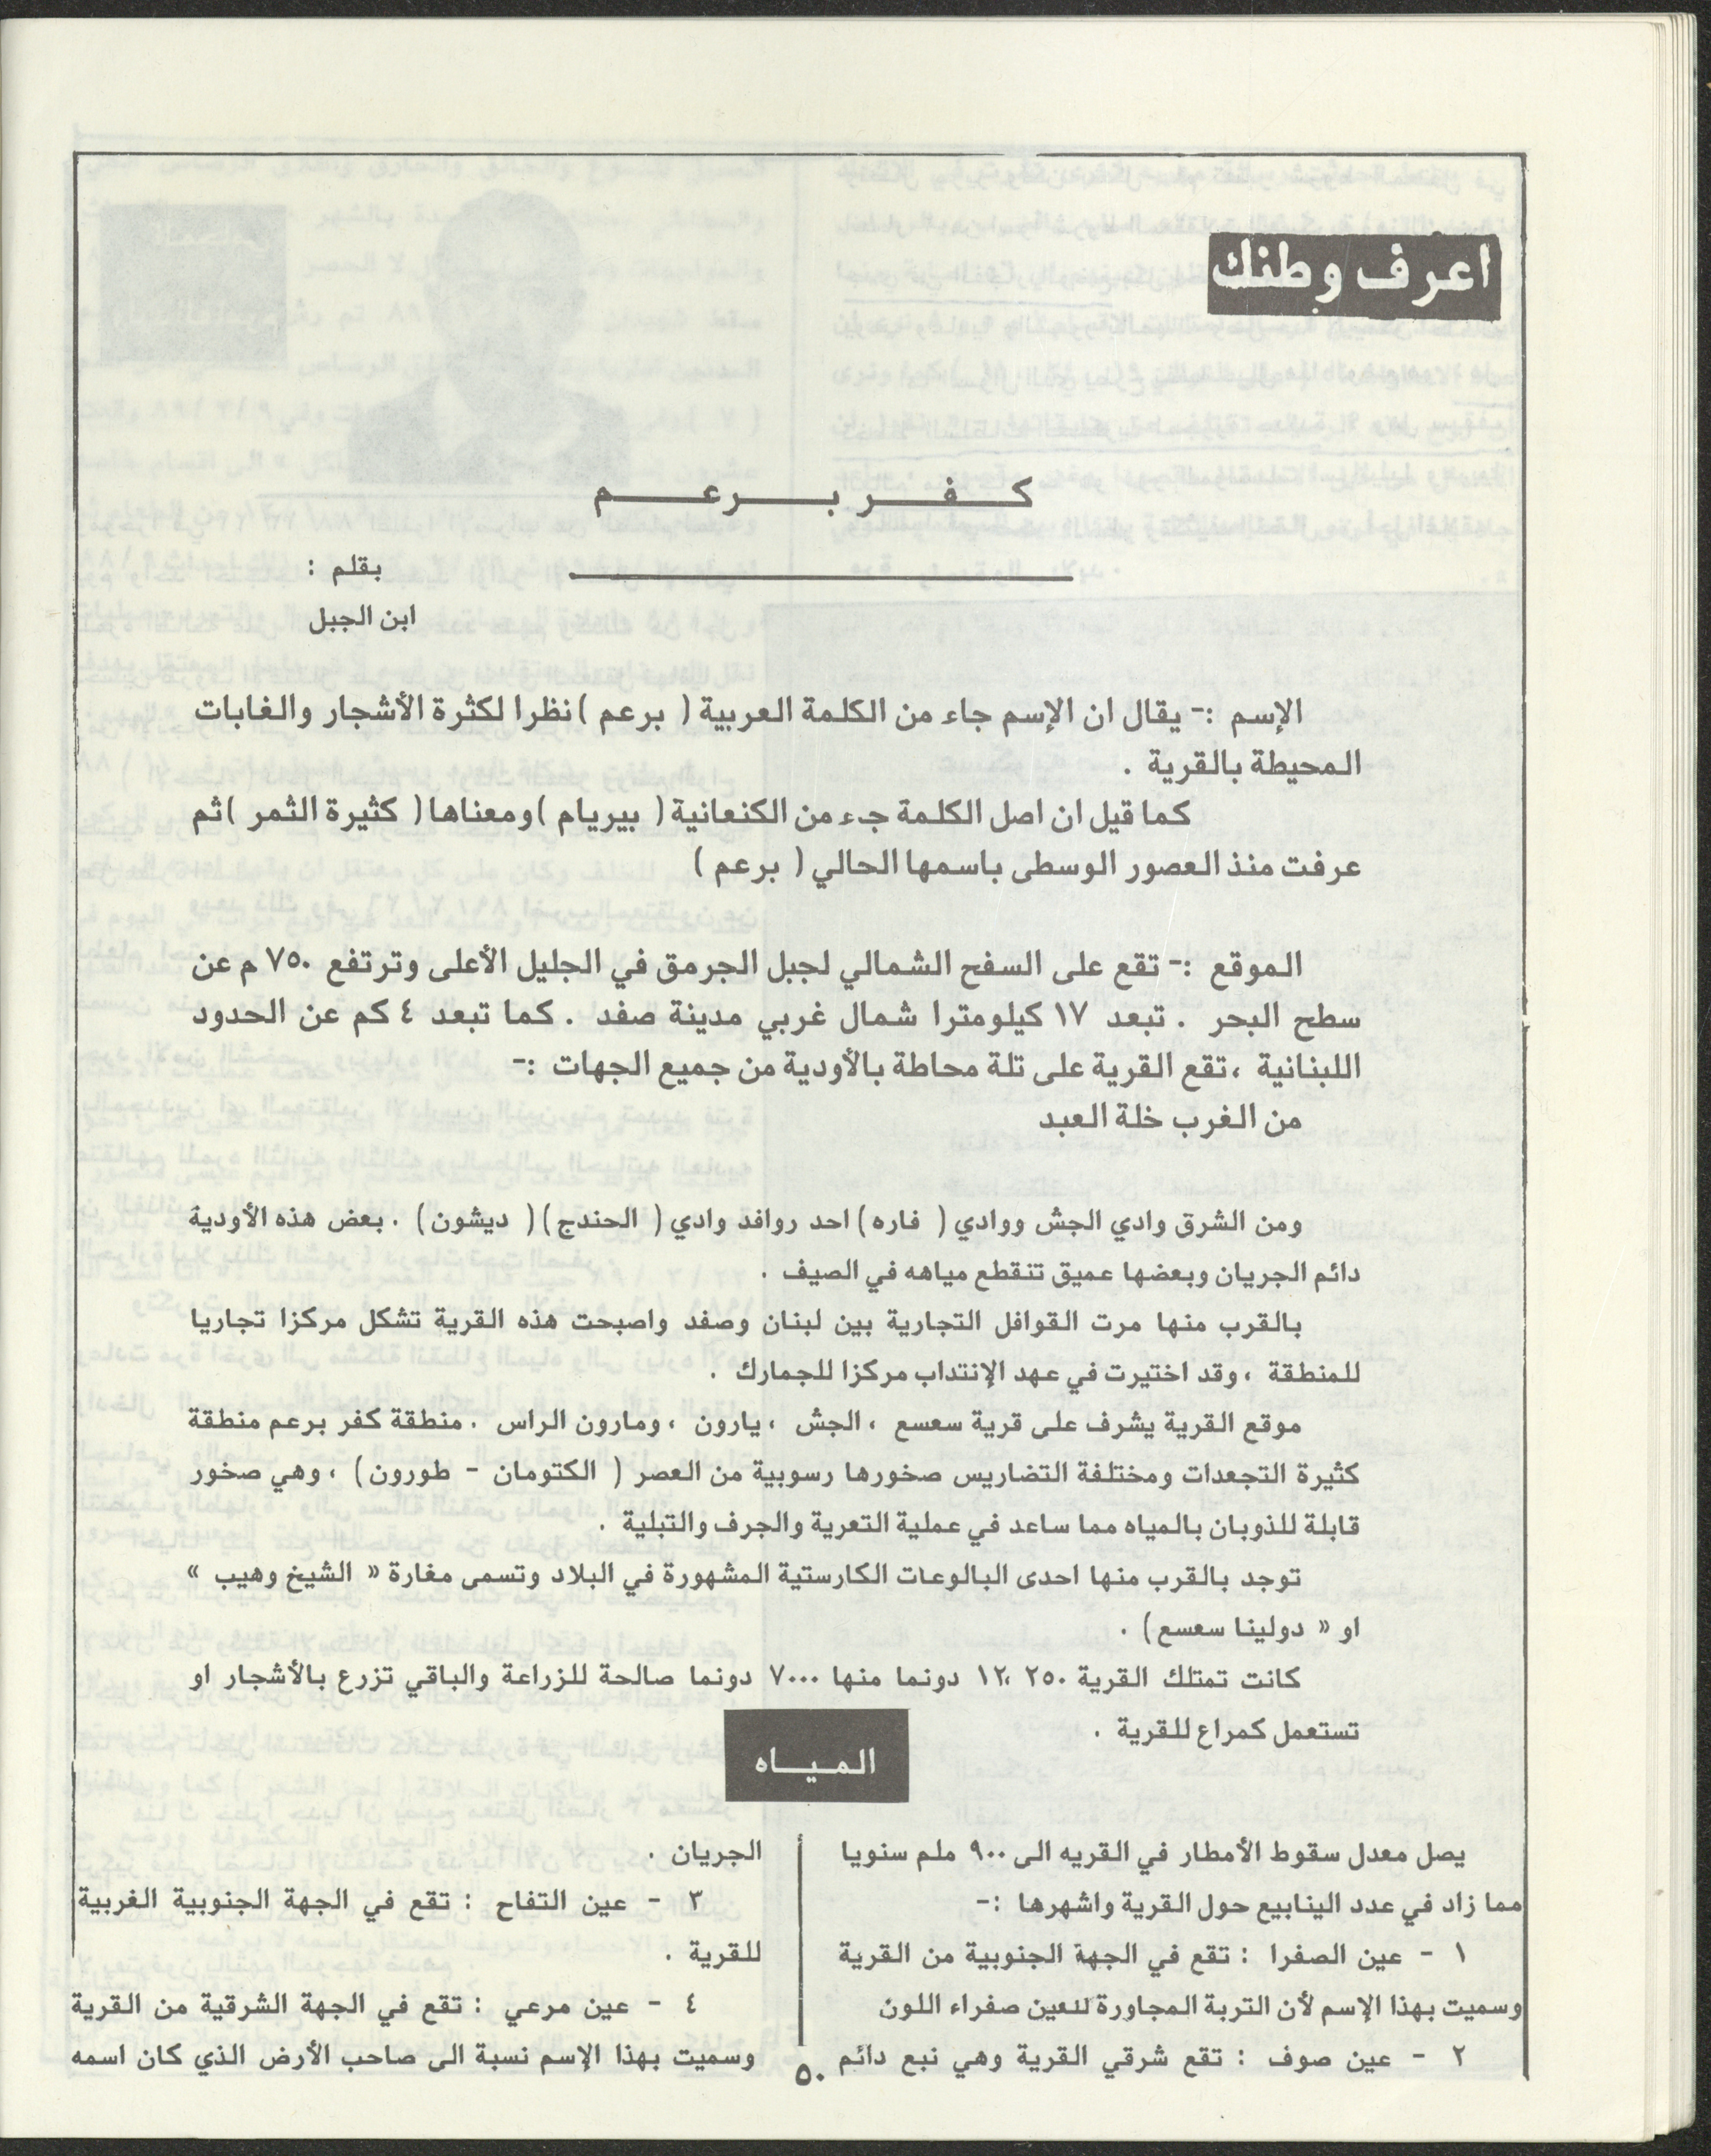 اعرف وطنك
كفر برعم
بقلم :
ابن الجبل
الإسم :- يقال ان الإسم جاء من الكلمة العربية ( برعم ) نظرا لكثرة الأشجار والغابات
المحيطة بالقرية .
كما قيل ان اصل الكلمة جء من الكنعانية ( بيريام ) ومعناها ( كثيرة الثمر ) ثم
عرفت منذ العصور الوسطى باسمها الحالي ( برعم )
الموقع :- تقع على السفح الشمالي لجبل الجرمق في الجليل الأعلى وترتفع ٧٥٠ م عن
سطح البحر . تبعد ١٧ كيلومترا شمال غربي مدينة صفد . كما تبعد ٤ كم عن الحدود
اللبنانية ، تقع القرية على تلة محاطة بالأودية من جميع الجهات :-
من الغرب خلة العبد
ومن الشرق وادي الجش ووادي ( فاره ) احد روافد وادي ( الحندج ) ( ديشون ) . بعض هذه الأودية
دائم الجريان وبعضها عميق تنقطع مياهه في الصيف .
بالقرب منها مرت القوافل التجارية بين لبنان وصفد واصبحت هذه القرية تشكل مركزا تجاريا
للمنطقة ، وقد اختيرت في عهد الإنتداب مركزا للجمارك .
موقع القرية يشرف على قرية سعسع ، الجش ، يارون ، ومارون الراس . منطقة كفر برعم منطقة
كثيرة التجعدات ومختلفة التضاريس صخورها رسوبية من العصر ( الكتومان - طورون ) ، وهي صخور
قابلة للذوبان بالمياه مما ساعد في عملية التعرية والجرف والتبلية .
توجد بالقرب منها احدى البالوعات الكارستية المشهورة في البلاد وتسمى مغارة « الشيخ وهيب »
او « دولينا سعسع ) .
كانت تمتلك القرية ١٢،٢٥٠ دونما منها ٧٠٠٠ دونما صالحة للزراعة والباقي تزرع بالأشجار او
تستعمل كمراع للقرية .
المياه
يصل معدل سقوط الأمطار في القريه الى ٩٠٠ ملم سنويا
مما زاد في عدد الينابيع حول القرية واشهرها :-
١ - عين الصفرا : تقع في الجهة الجنوبية من القرية
وسميت بهذا الإسم لأن التربة المجاورة للعين صفراء اللون
٢ - عين صوف : تقع شرقي القرية وهي نبع دائم
الجريان .
٣ - عين التفاح : تقع في الجهة الجنوبية الغربية
للقرية .
٤ - عين مرعي : تقع في الجهة الشرقية من القرية
وسميت بهذا الإسم نسبة الى صاحب الأرض الذي كان اسمه
٥٠